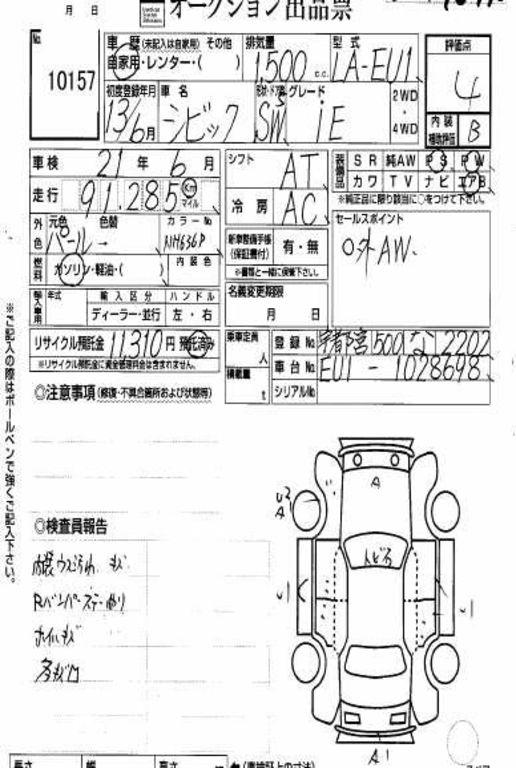 月 日
オークション出品票
No.
10157
車歴 (未記入は自家用) その他
自家用・レンター・( )
排気量
1,500 c.c.
型式
LA-EU1
評価点
4
内装
補助評価
B
初度登録年月
13/6月
車名
シビック
形状・ドア数
5
SW
グレード
iE
2WD
・
4WD
車検 21 年 6 月
走行 91,285 Km
マイル
シフト
AT
冷房
AC
装備品
SR 純AW PS PW
カワ TV ナビ エアB
※純正品に限り該当に○をつけて下さい。
外色
元色 色替
パール →
カラーNo
NH636P
内装色
燃料
ガソリン・軽油・( )
新車整備手帳
(保証書付)
有・無
※書類と一緒に保管下さい。
セールスポイント
○外AW.
輸入車用
年式
輸入区分
ハンドル
ディーラー・並行
左・右
名義変更期限
月 日
リサイクル預託金 11310 円 預託済み
※リサイクル預託金に資金管理料金は含まれません。
乗車定員
人
積載量
t
登録No 宇都宮500な2202
車台No EU1-1028698
シリアルNo
◎注意事項 (修復・不具合箇所および状態等)
※ご記入の際はボールペンで強くご記入下さい。
◎検査員報告
内装ウスヨゴれ キズ
Rバンパーステー曲り
ホイルキズ
多キズ凹
A
U2
A1
トビ石
U1
U1
A1
長さ 幅 高さ
(車検証上の寸法)